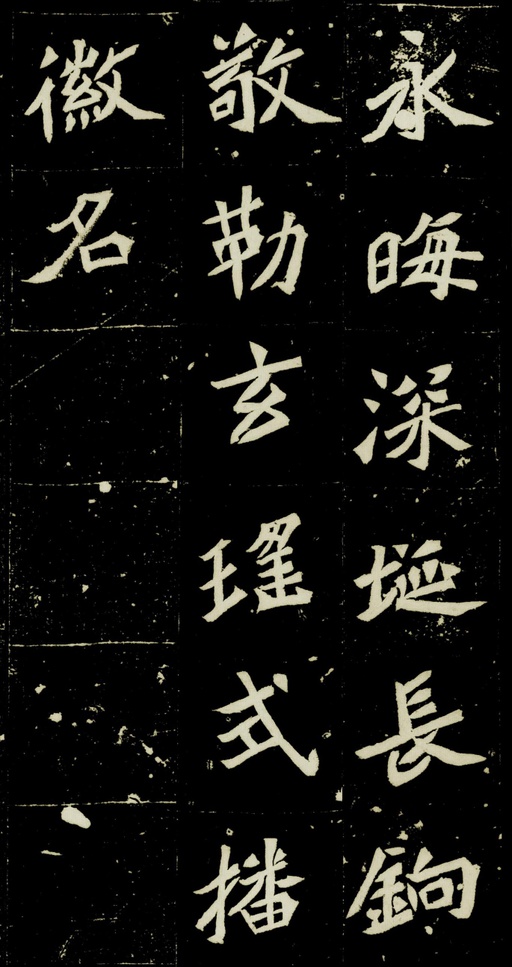 永晦深埏長鉤
敬勒玄瑤式播
徽名